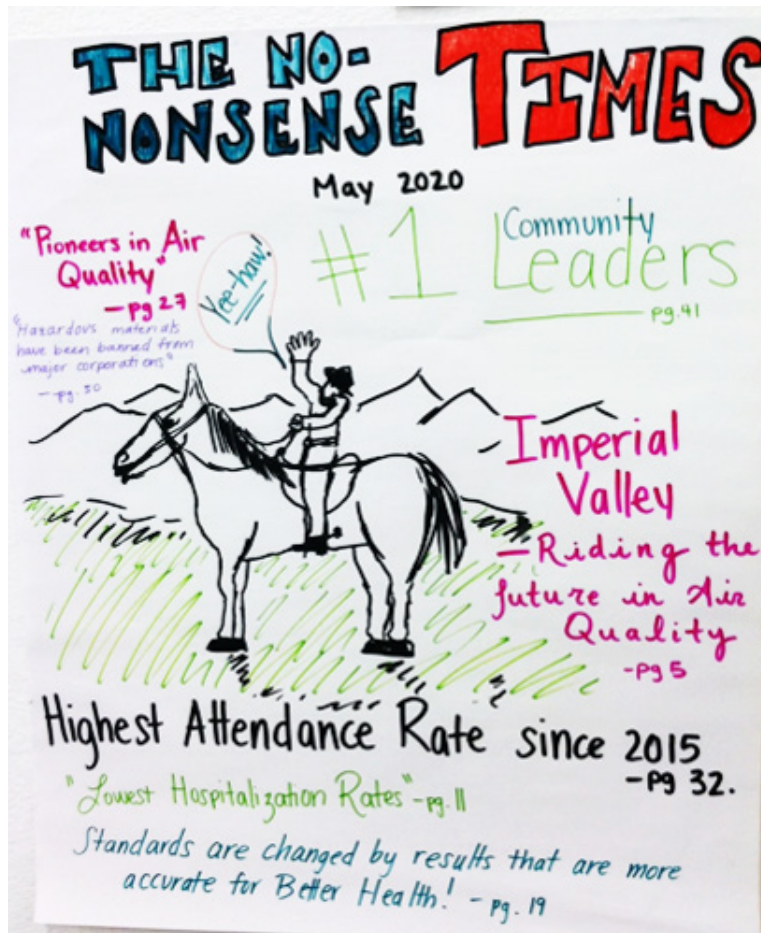 THE NO-
NONSENSE TIMES
May 2020
"Pioneers in Air
Quality"
-pg 27
"Hazardous materials
have been banned from
major corporations"
-pg. 30
Yee-haw!
#1 Community
Leaders
pg.41
Imperial
Valley
-Riding the
future in Air
Quality
-pg 5
Highest Attendance Rate since 2015
-pg 32.
"Lowest Hospitalization Rates"-pg.11
Standards are changed by results that are more
accurate for Better Health! - pg. 19